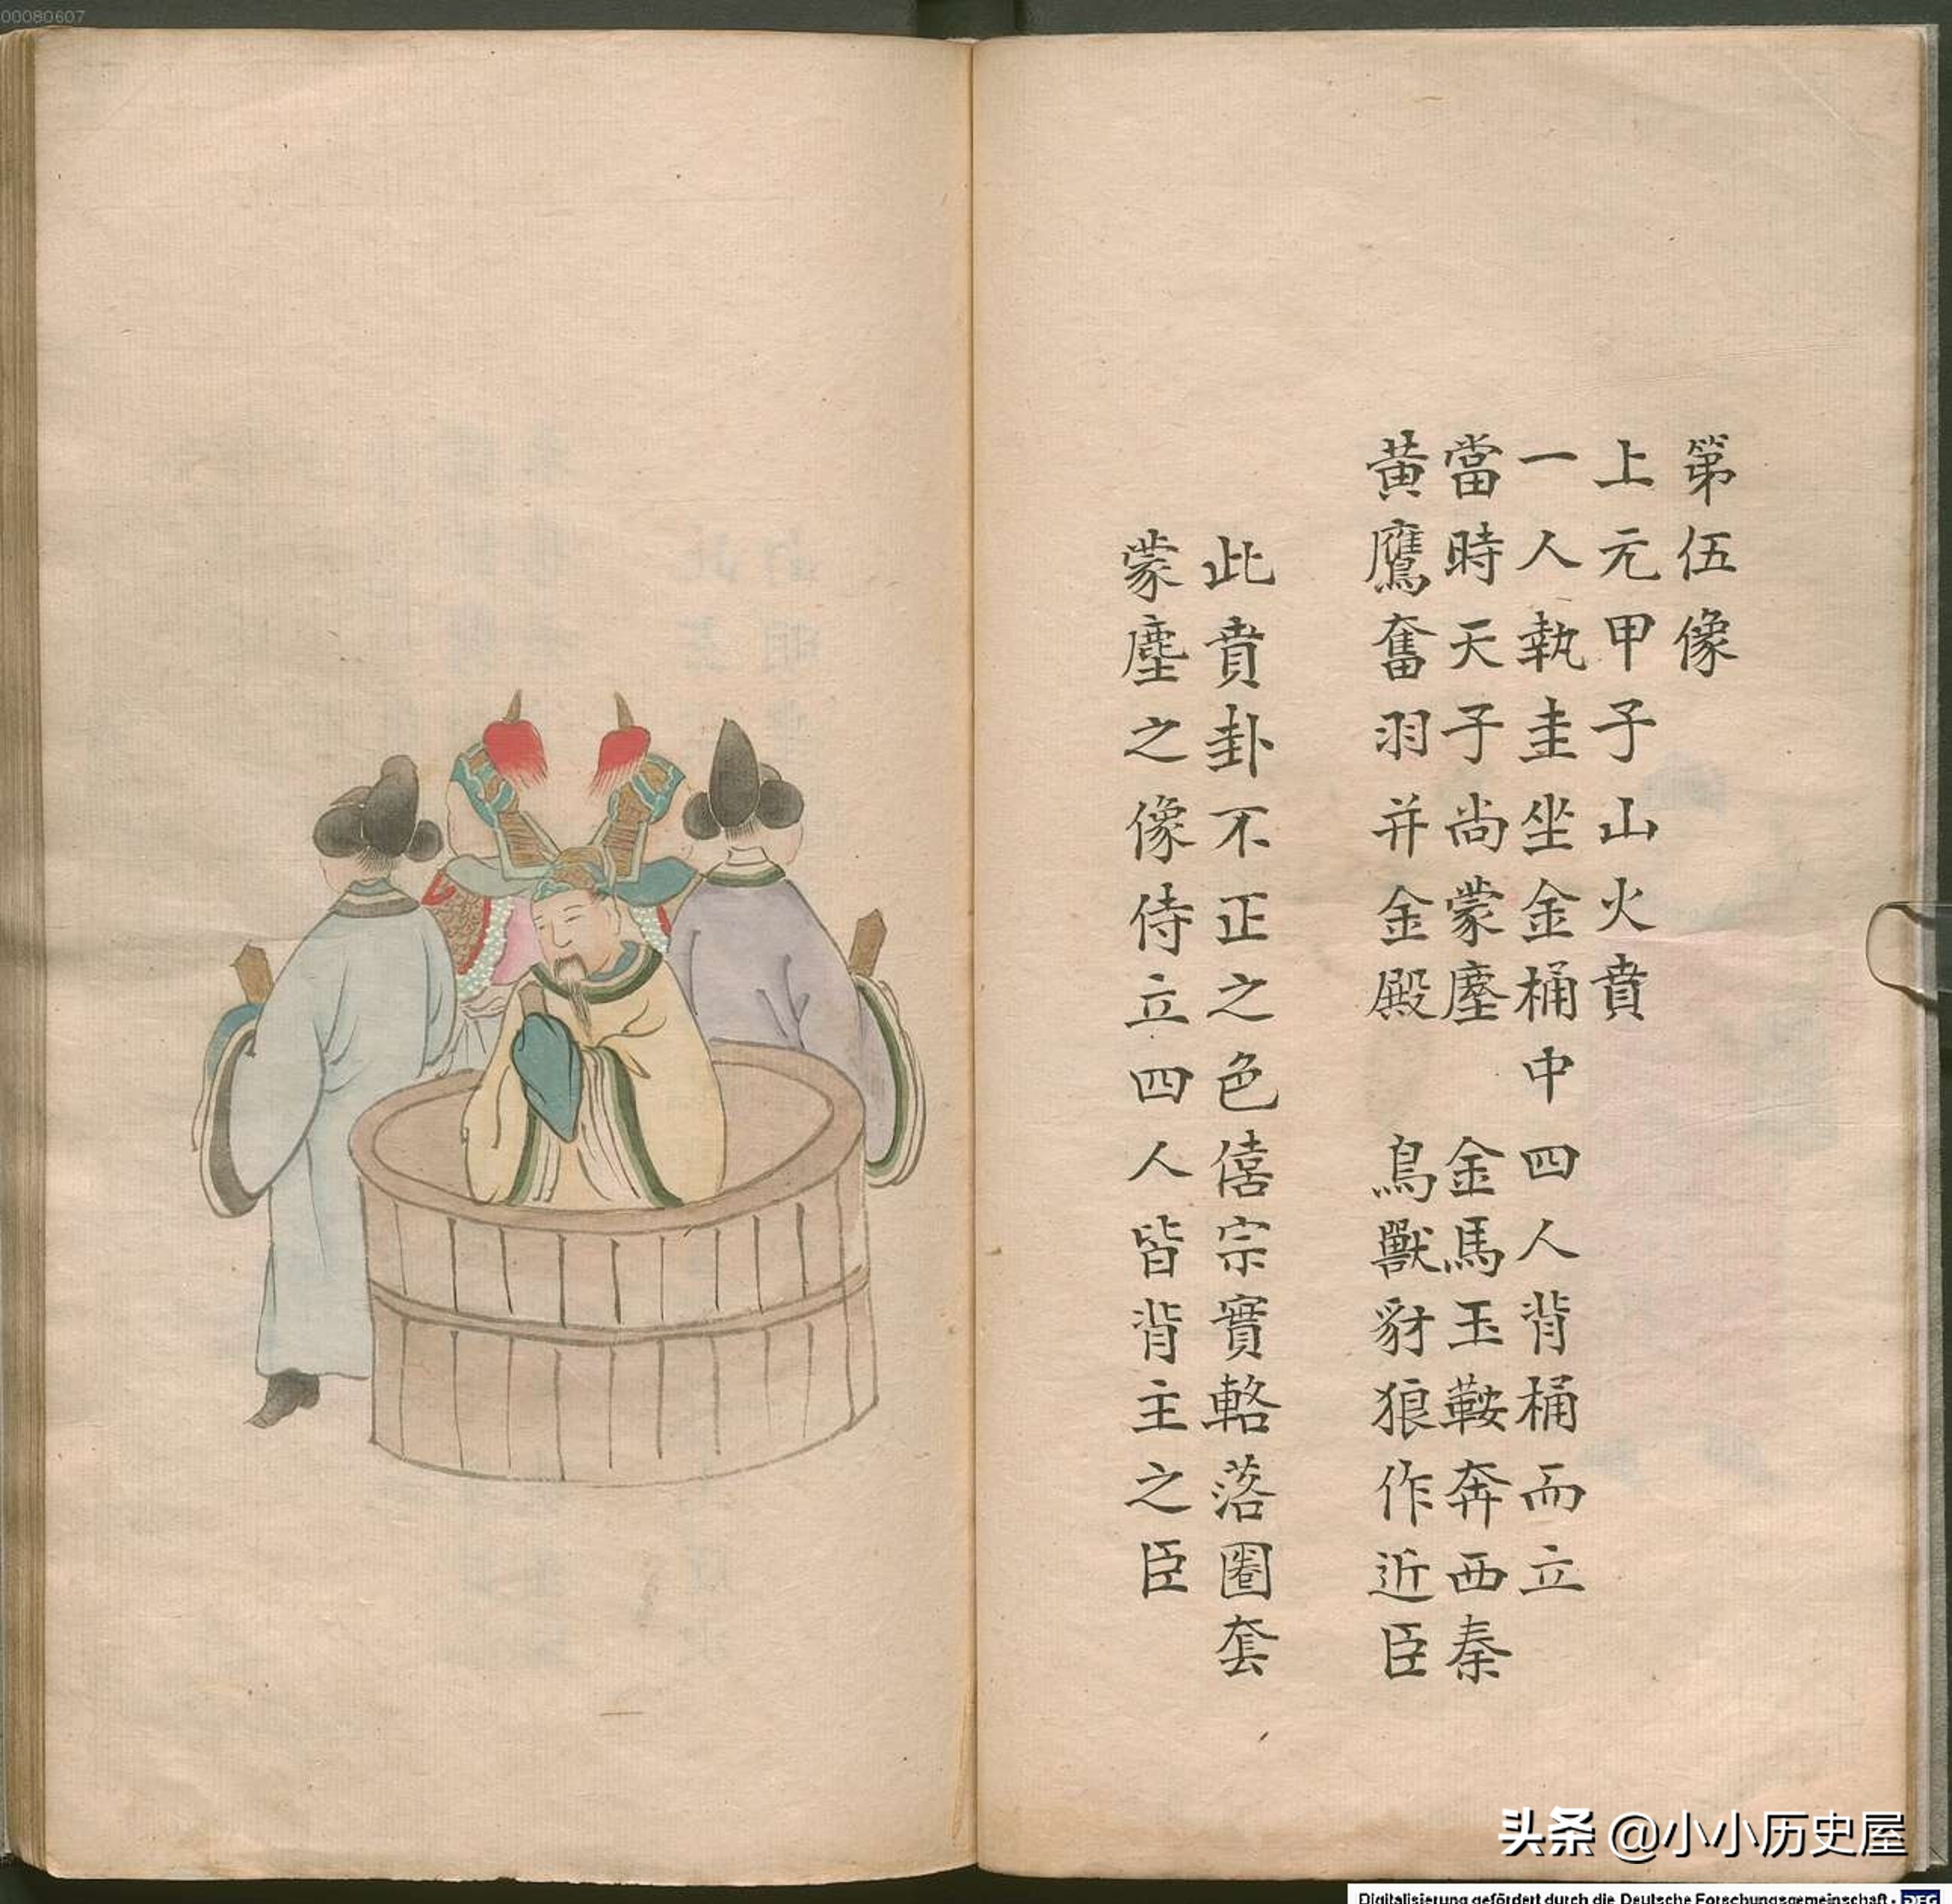 00080607
第伍像
上元甲子山火賁
一人執圭坐金桶中四人背桶而立
當時天子尚蒙塵　金馬玉鞍奔西秦
黄鷹奮羽并金殿　鳥獸豺狼作近臣
此賁卦不正之色僖宗實輅落圈套
蒙塵之像侍立四人皆背主之臣
头条 @小小历史屋
Digitalisierung gefördert durch die Deutsche Forschungsgemeinschaft - DFG